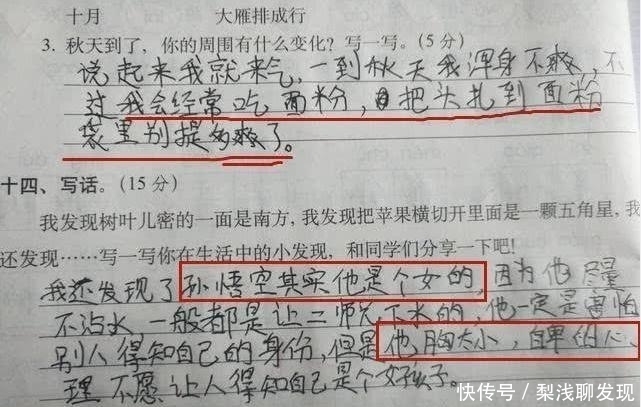 十月 大雁排成行
3. 秋天到了，你的周围有什么变化？写一写。(5分)
说起来我就来气，一到秋天我浑身不爽，不
过我会经常吃面粉，把头扎到面粉
袋里别提多爽了。
十四、写话。(15分)
我发现树叶儿密的一面是南方，我发现把苹果横切开里面是一颗五角星，我
还发现……写一写你在生活中的小发现，和同学们分享一下吧！
我还发现了孙悟空其实他是个女的，因为他尽量
不沾水，一般都是让二师兄下水的，他一定是害怕
别人得知自己的身份，但是他胸太小，自卑的心
理不愿让人得知自己是个女孩子。
快传号／梨浅聊发现